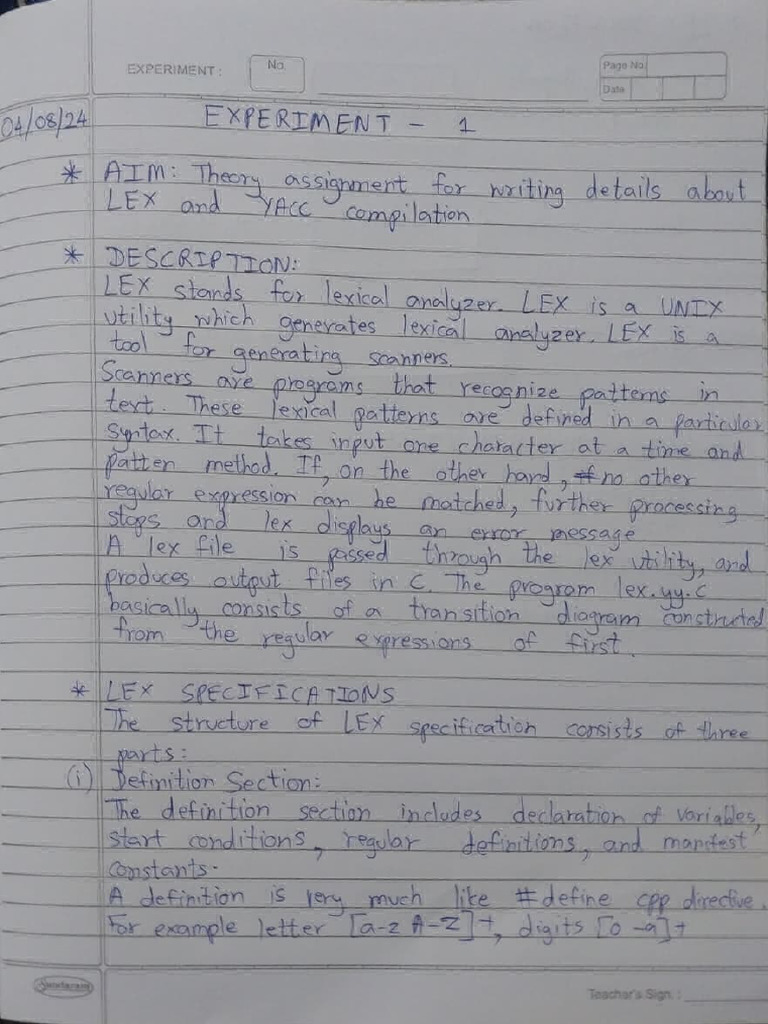 EXPERIMENT :
No.
Page No.
Date
04/08/24
EXPERIMENT - 1
* AIM: Theory assignment for writing details about
LEX and YACC compilation
* DESCRIPTION:
LEX stands for lexical analyzer. LEX is a UNIX
utility which generates lexical analyzer. LEX is a
tool for generating scanners.
Scanners are programs that recognize patterns in
text. These lexical patterns are defined in a particular
Syntax. It takes input one character at a time and
patter method. If, on the other hand, no other
regular expression can be matched, further processing
stops and lex displays an error message
A lex file is passed through the lex utility, and
produces output files in C. The program lex.yy.c
basically consists of a transition diagram constructed
from the regular expressions of first.
* LEX SPECIFICATIONS
The structure of LEX specification consists of three
parts:
(i) Definition Section:
The definition section includes declaration of variables,
start conditions, regular definitions, and manifest
constants.
A definition is very much like #define cpp directive.
For example letter [a-z A-Z]+, digits [0-9]+
Sundaram
Teacher's Sign. :